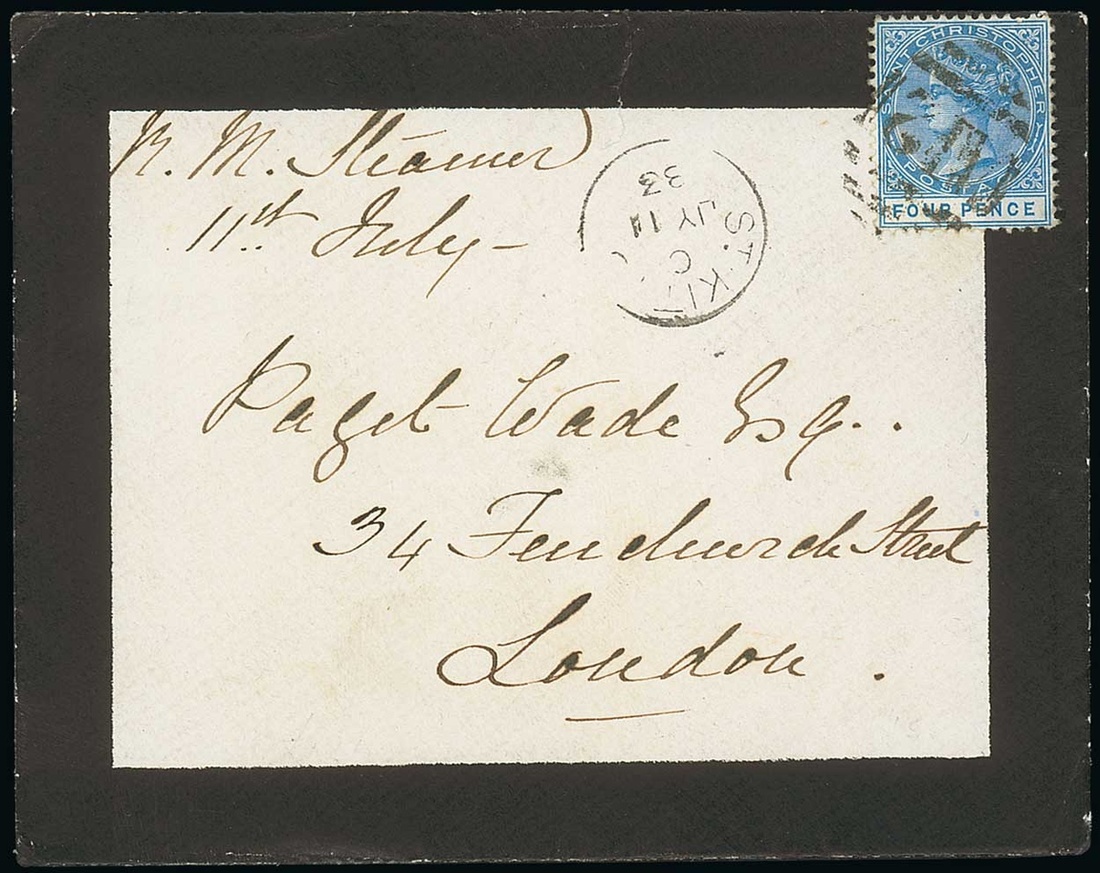 R. M. Steamer
11st July -
Paget Wade Esq..
34 Fenchurch Street
London.
ST. KIT
C
JY 11
83
SAINT CHRISTOPHER
POSTAGE
FOUR PENCE